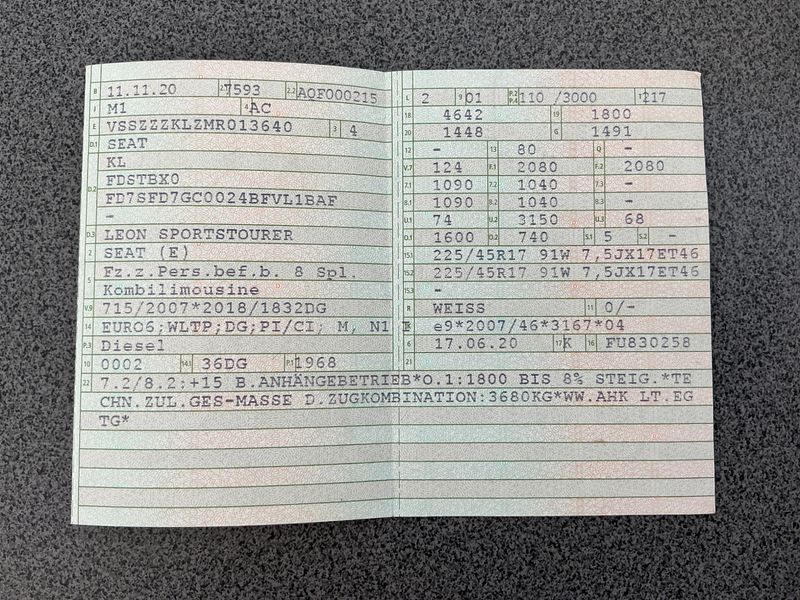 B 11.11.20 2.1 7593 2.2 AQF000215
J M1 4 AC
E VSSZZZKLZMR013640 3 4
D.1 SEAT
KL
D.2 FDSTBX0
FD7SFD7GC0024BFVL1BAF
-
D.3 LEON SPORTSTOURER
2 SEAT (E)
5 Fz.z.Pers.bef.b. 8 Spl.
Kombilimousine
V.9 715/2007*2018/1832DG
14 EURO6;WLTP;DG;PI/CI; M, N1 I
P.3 Diesel
10 0002 14.1 36DG P.1 1968
L 2 9 01 P.2 P.4 110 /3000 T 217
18 4642 19 1800
20 1448 G 1491
12 - 13 80 Q -
V.7 124 F.1 2080 F.2 2080
7.1 1090 7.2 1040 7.3 -
8.1 1090 8.2 1040 8.3 -
U.1 74 U.2 3150 U.3 68
O.1 1600 O.2 740 S.1 5 S.2 -
15.1 225/45R17 91W 7,5JX17ET46
15.2 225/45R17 91W 7,5JX17ET46
15.3 -
R WEISS 11 0/-
K e9*2007/46*3167*04
6 17.06.20 17 K 16 FU830258
21
22 7.2/8.2:+15 B.ANHÄNGEBETRIEB*O.1:1800 BIS 8% STEIG.*TE
CHN.ZUL.GES-MASSE D.ZUGKOMBINATION:3680KG*WW.AHK LT.EG
TG*